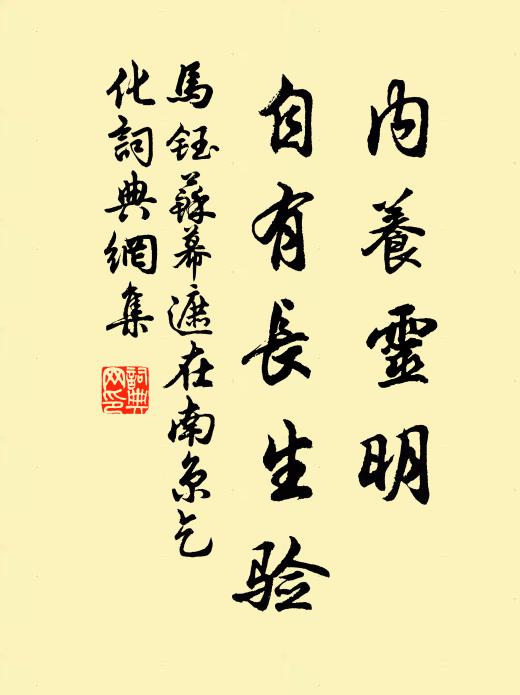 內養靈明
自有長生验
馬鈺蘇幕遮在南京乞
化詞典網集
詞典
网印